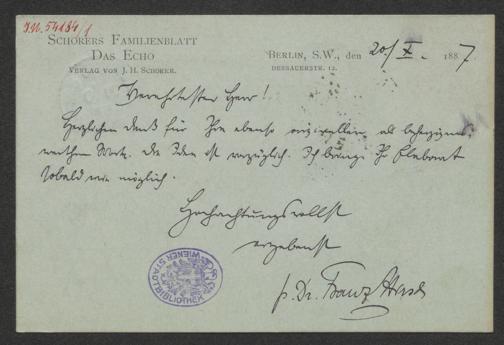 I.N. 54184/1
SCHORERS FAMILIENBLATT
DAS ECHO
VERLAG VON J. H. SCHORER.
BERLIN, S.W., den 20/X. 1887
DESSAUERSTR. 12.
Verehrtester Herr!
Herzlichen Dank für Ihre ebenso originellen als beherzigens-
werthen Worte. Die Idee ist vorzüglich. Ich bringe Ihr
sobald wie möglich.
Hochachtungsvollst
ergebenst
Dr. Franz
WIENER STADTBIBLIOTHEK